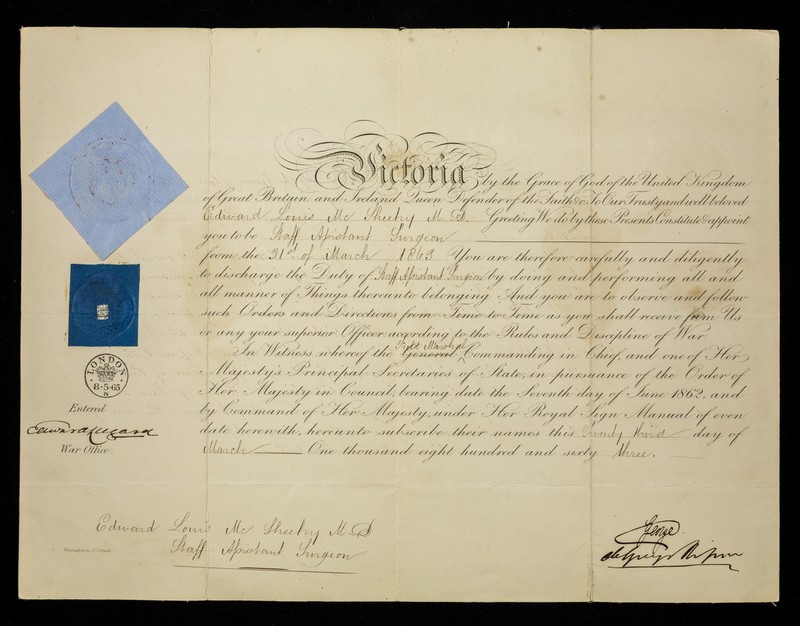 Victoria by the Grace of God of the United Kingdom
of Great Britain and Ireland Queen Defender of the Faith &c. To Our Trusty and well beloved
Edward Louis Mc Sheehy M.D. Greeting We do by these Presents Constitute & appoint
you to be Staff Assistant Surgeon
from the 21st of March 1863 You are therefore carefully and diligently
to discharge the Duty of Staff Assistant Surgeon by doing and performing all and
all manner of Things thereunto belonging And you are to observe and follow
such Orders and Directions from Time to Time as you shall receive from Us
or any your superior Officer according to the Rules and Discipline of War
Field Marshal
In Witness whereof the General Commanding in Chief, and one of Her
Majesty's Principal Secretaries of State, in pursuance of the Order of
Her Majesty in Council, bearing date the Seventh day of June 1862, and
by Command of Her Majesty, under Her Royal Sign Manual of even
date herewith, hereunto subscribe their names this Twenty third day of
March One thousand eight hundred and sixty three.
LONDON
8·5·65
N
Entered
War Office.
Edward Louis Mc Sheehy M.D
Staff Assistant Surgeon
George
de Grey & Ripon